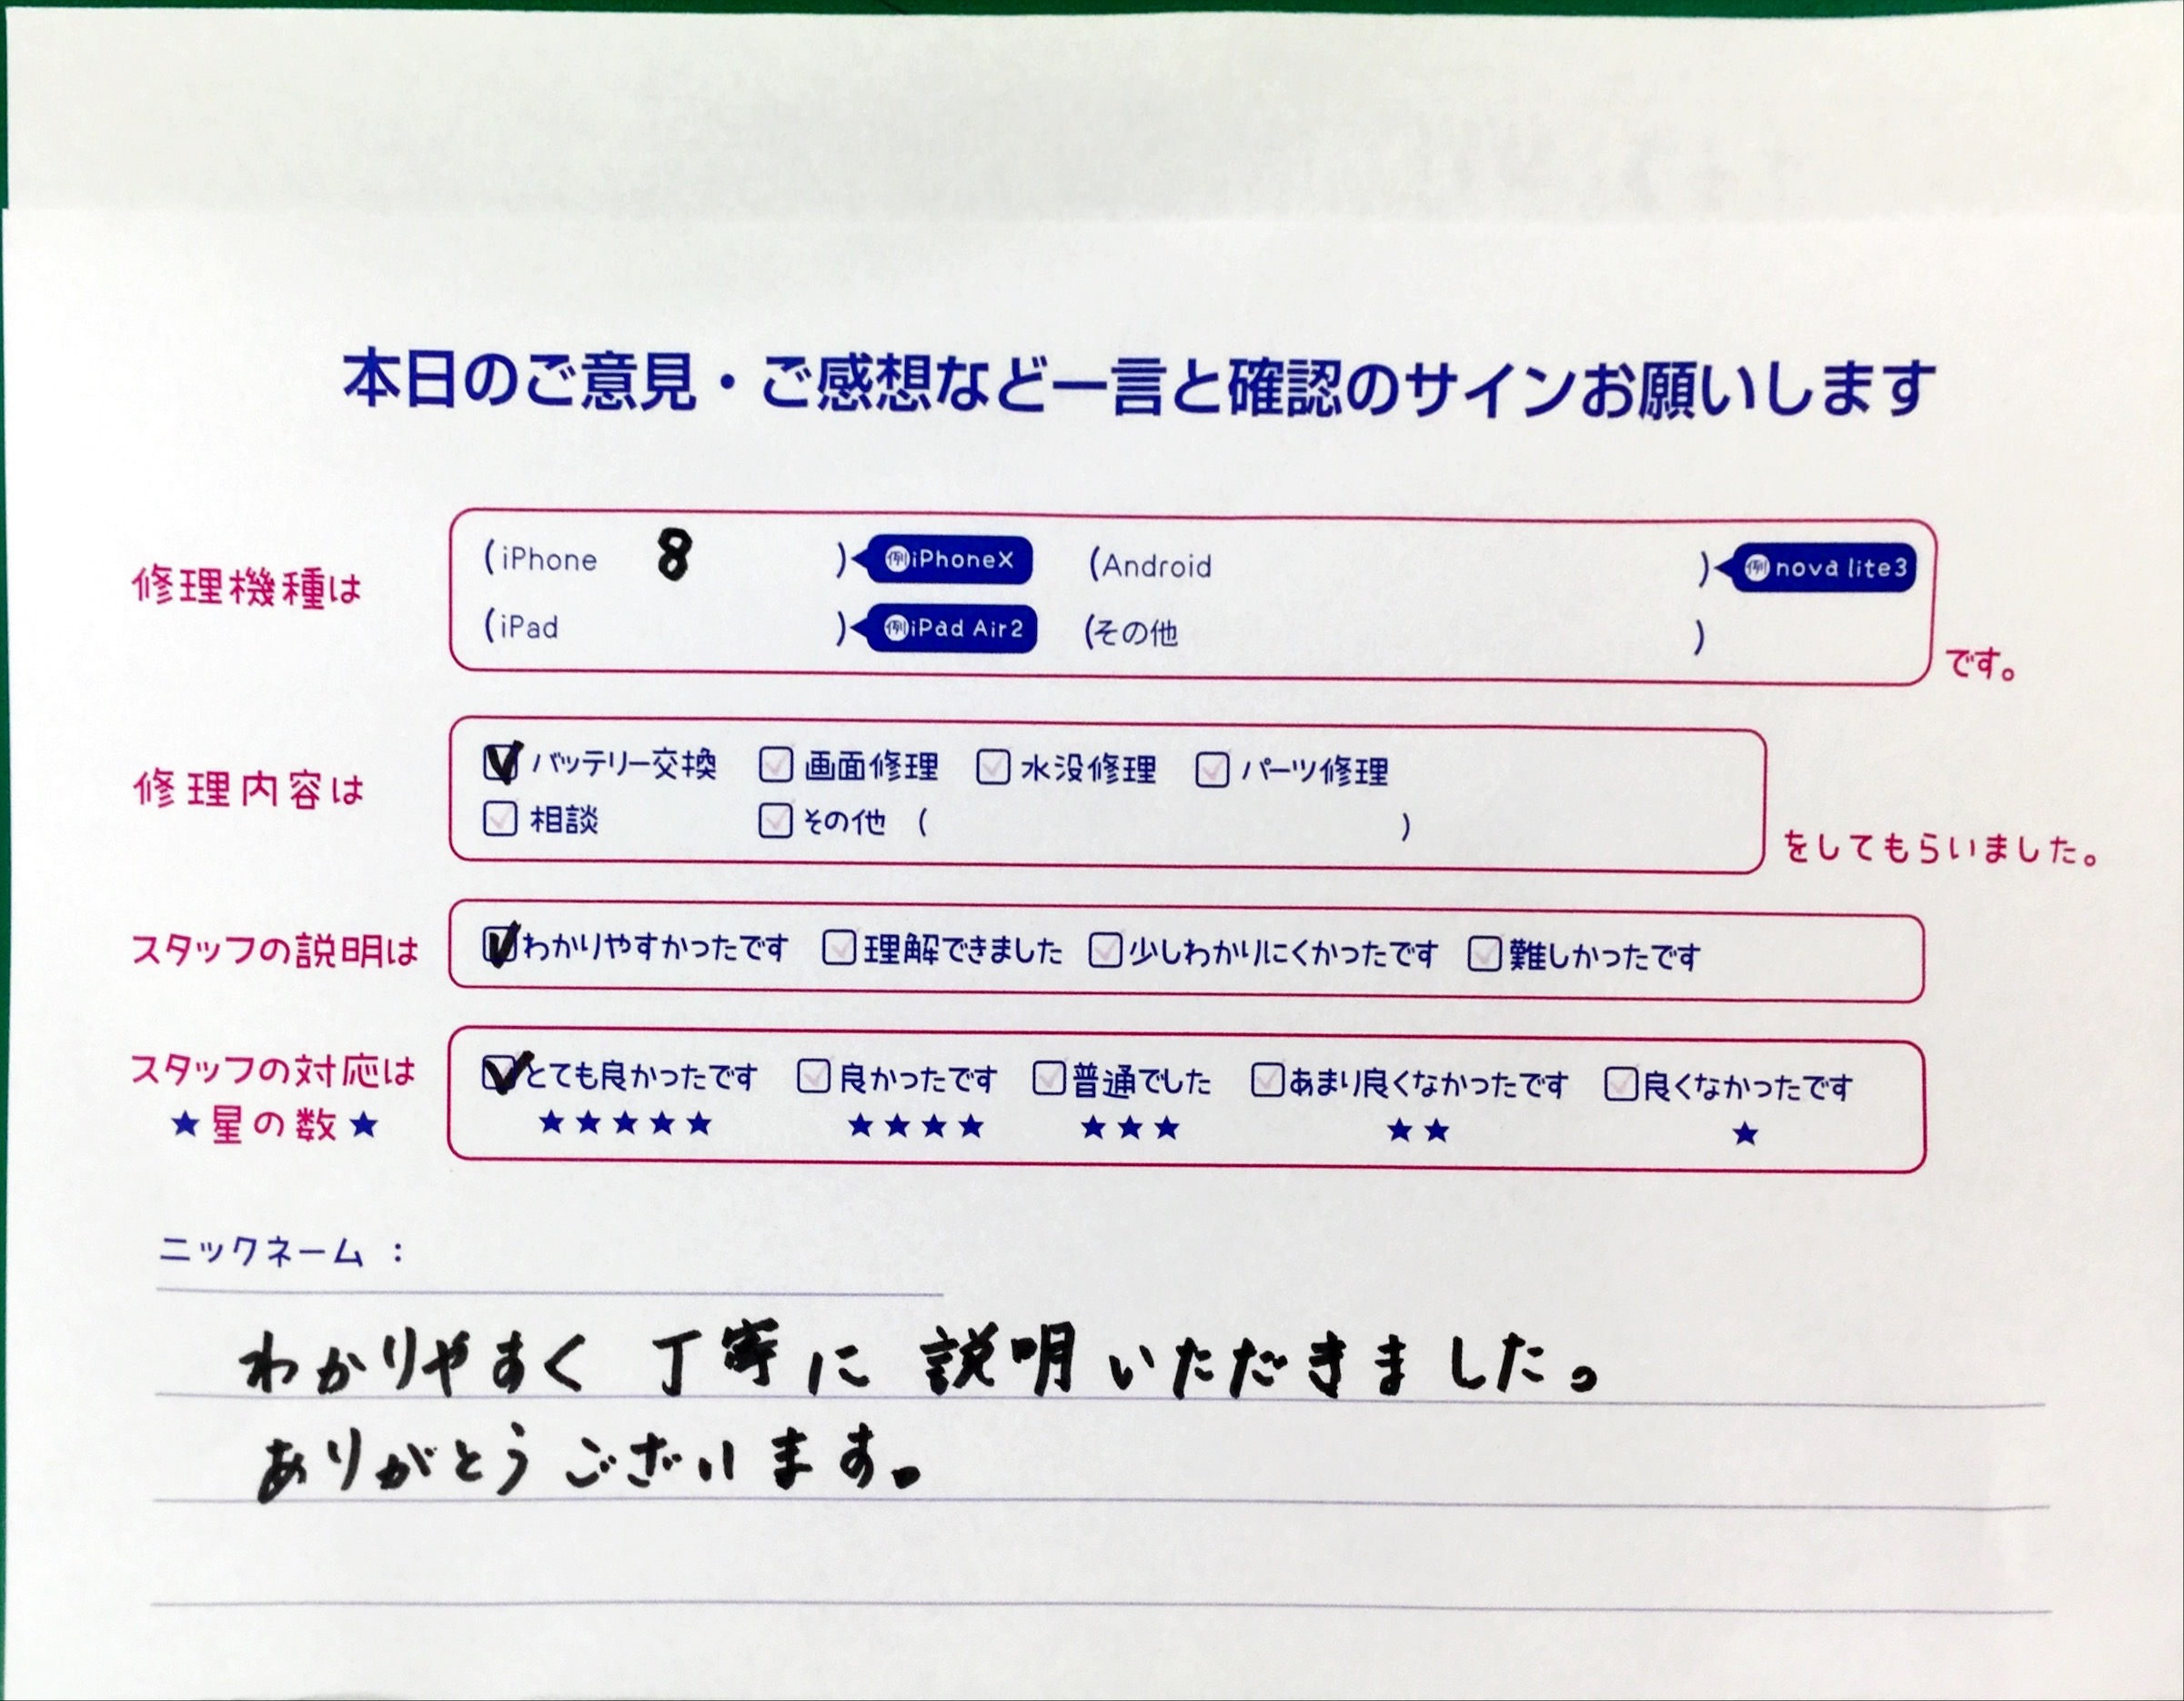 本日のご意見・ご感想など一言と確認のサインお願いします
修理機種は
(iPhone 8 ) 例iPhoneX (Android ) 例nova lite3
(iPad ) 例iPad Air2 (その他 ) です。
修理内容は
バッテリー交換 画面修理 水没修理 パーツ修理
相談 その他 ( ) をしてもらいました。
スタッフの説明は わかりやすかったです 理解できました 少しわかりにくかったです 難しかったです
スタッフの対応は とても良かったです 良かったです 普通でした あまり良くなかったです 良くなかったです
★星の数★ ★★★★★ ★★★★ ★★★ ★★ ★
ニックネーム :
わかりやすく 丁寧に 説明 いただきました。
ありがとうございます。